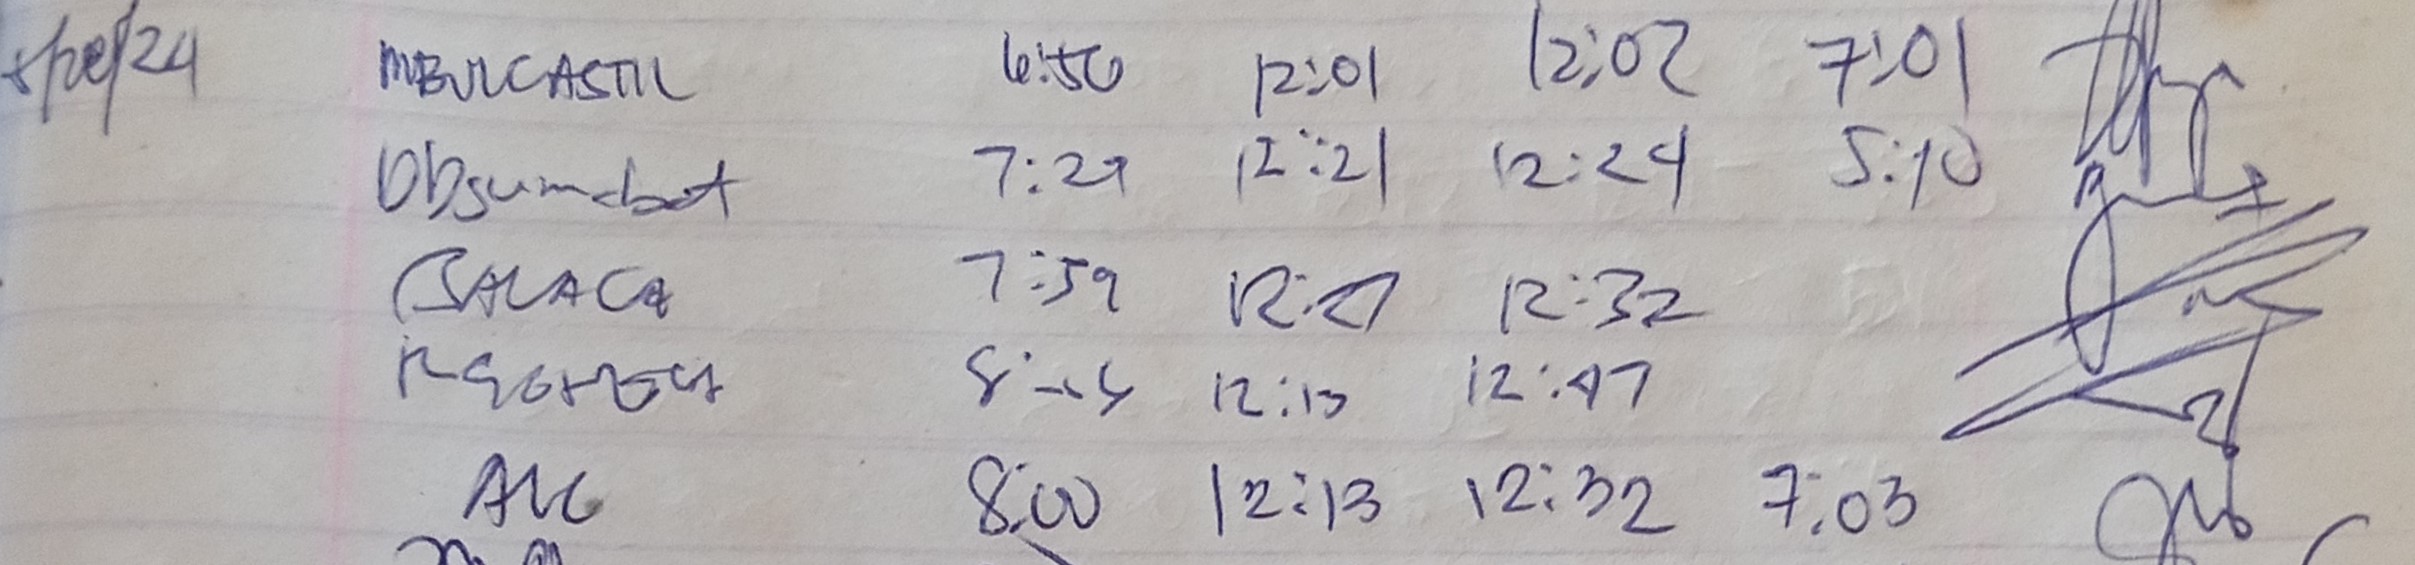 MBULCASTIL 6:56 12:01 12:02 7:01
DDsumabat 7:29 12:21 12:24 5:10
BALACA 7:59 12:27 12:32
12:13 12:47
ALC 8:00 12:13 12:32 7:03